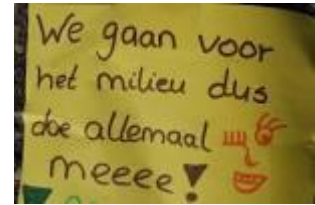 We gaan voor
het milieu dus
doe allemaal
meeee!